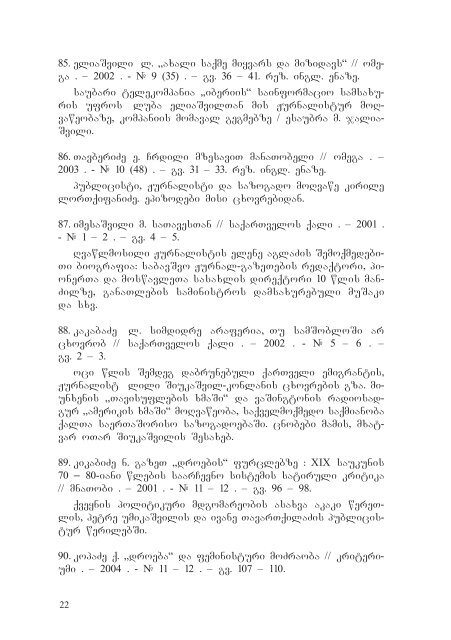 85. ელიაშვილი ლ. „ახალი საქმე მიყვარს და მიზიდავს“ // ომე-
გა . – 2002 . - № 9 (35) . – გვ. 36 – 41. რეზ. ინგლ. ენაზე.
საუბარი ტელეკომპანია „იბერიის“ საინფორმაციო სამსახუ-
რის უფროს ლუბა ელიაშვილთან მის ჟურნალისტურ მოღ-
ვაწეობაზე, კომპანიის მომავალ გეგმებზე / ესაუბრა მ. ჯალია-
შვილი.
86. თავბერიძე ე. ჩრდილი მზესავით მანათობელი // ომეგა . –
2003 . - № 10 (48) . – გვ. 31 – 33. რეზ. ინგლ. ენაზე.
პუბლიცისტი, ჟურნალისტი და საზოგადო მოღვაწე კირილე
ლორთქიფანიძე. ეპიზოდები მისი ცხოვრებიდან.
87. იმესაშვილი მ. სათავესთან // საქართველოს ქალი . – 2001 .
- № 1 – 2 . – გვ. 4 – 5.
ღვაწლმოსილი ჟურნალისტის ელენე აგლაძის შემოქმედები-
თი ბიოგრაფია: საბავშვო ჟურნალ-გაზეთების რედაქტორი, პი-
ონერთა და მოსწავლეთა სასახლის დირექტორი 10 წლის მან-
ძილზე, განათლების სამინისტროს დამსახურებული მუშაკი
და სხვ.
88. კაკაბაძე ლ. სიმდიდრე არაფერია, თუ სამშობლოში არ
ცხოვრობ // საქართველოს ქალი . – 2002 . - № 5 – 6 . –
გვ. 2 – 3.
ოცი წლის შემდეგ დაბრუნებული ქართველი ემიგრანტის,
ჟურნალისტ ლილი შიუკაშვილ-კონლანის ცხოვრების გზა. მი-
უნხენის „თავისუფლების ხმაში“ და ვაშინგტონის რადიოსად-
გურ „ამერიკის ხმაში“ მოღვაწეობა, საქველმოქმედო საქმიანობა
ქალთა საერთაშორისო საზოგადოებაში. ცნობები მამის, მხატ-
ვარ ოთარ შიუკაშვილის შესახებ.
89. კიკაბიძე ნ. გაზეთ „დროების“ ფურცლებზე : XIX საუკუნის
70 – 80-იანი წლების საარჩევნო სისტემის სატირული კრიტიკა
// მნათობი . – 2001 . - № 11 – 12 . – გვ. 96 – 98.
ქვეყნის პოლიტიკური მდგომარეობის ასახვა აკაკი წერეთ-
ლის, პეტრე უმიკაშვილის და ივანე თავართქილაძის პუბლიცის-
ტურ წერილებში.
90. კოპაძე ქ. „დროება“ და ფემინისტური მოძრაობა // კრიტერი-
უმი . – 2004 . - № 11 – 12 . – გვ. 107 – 110.
22